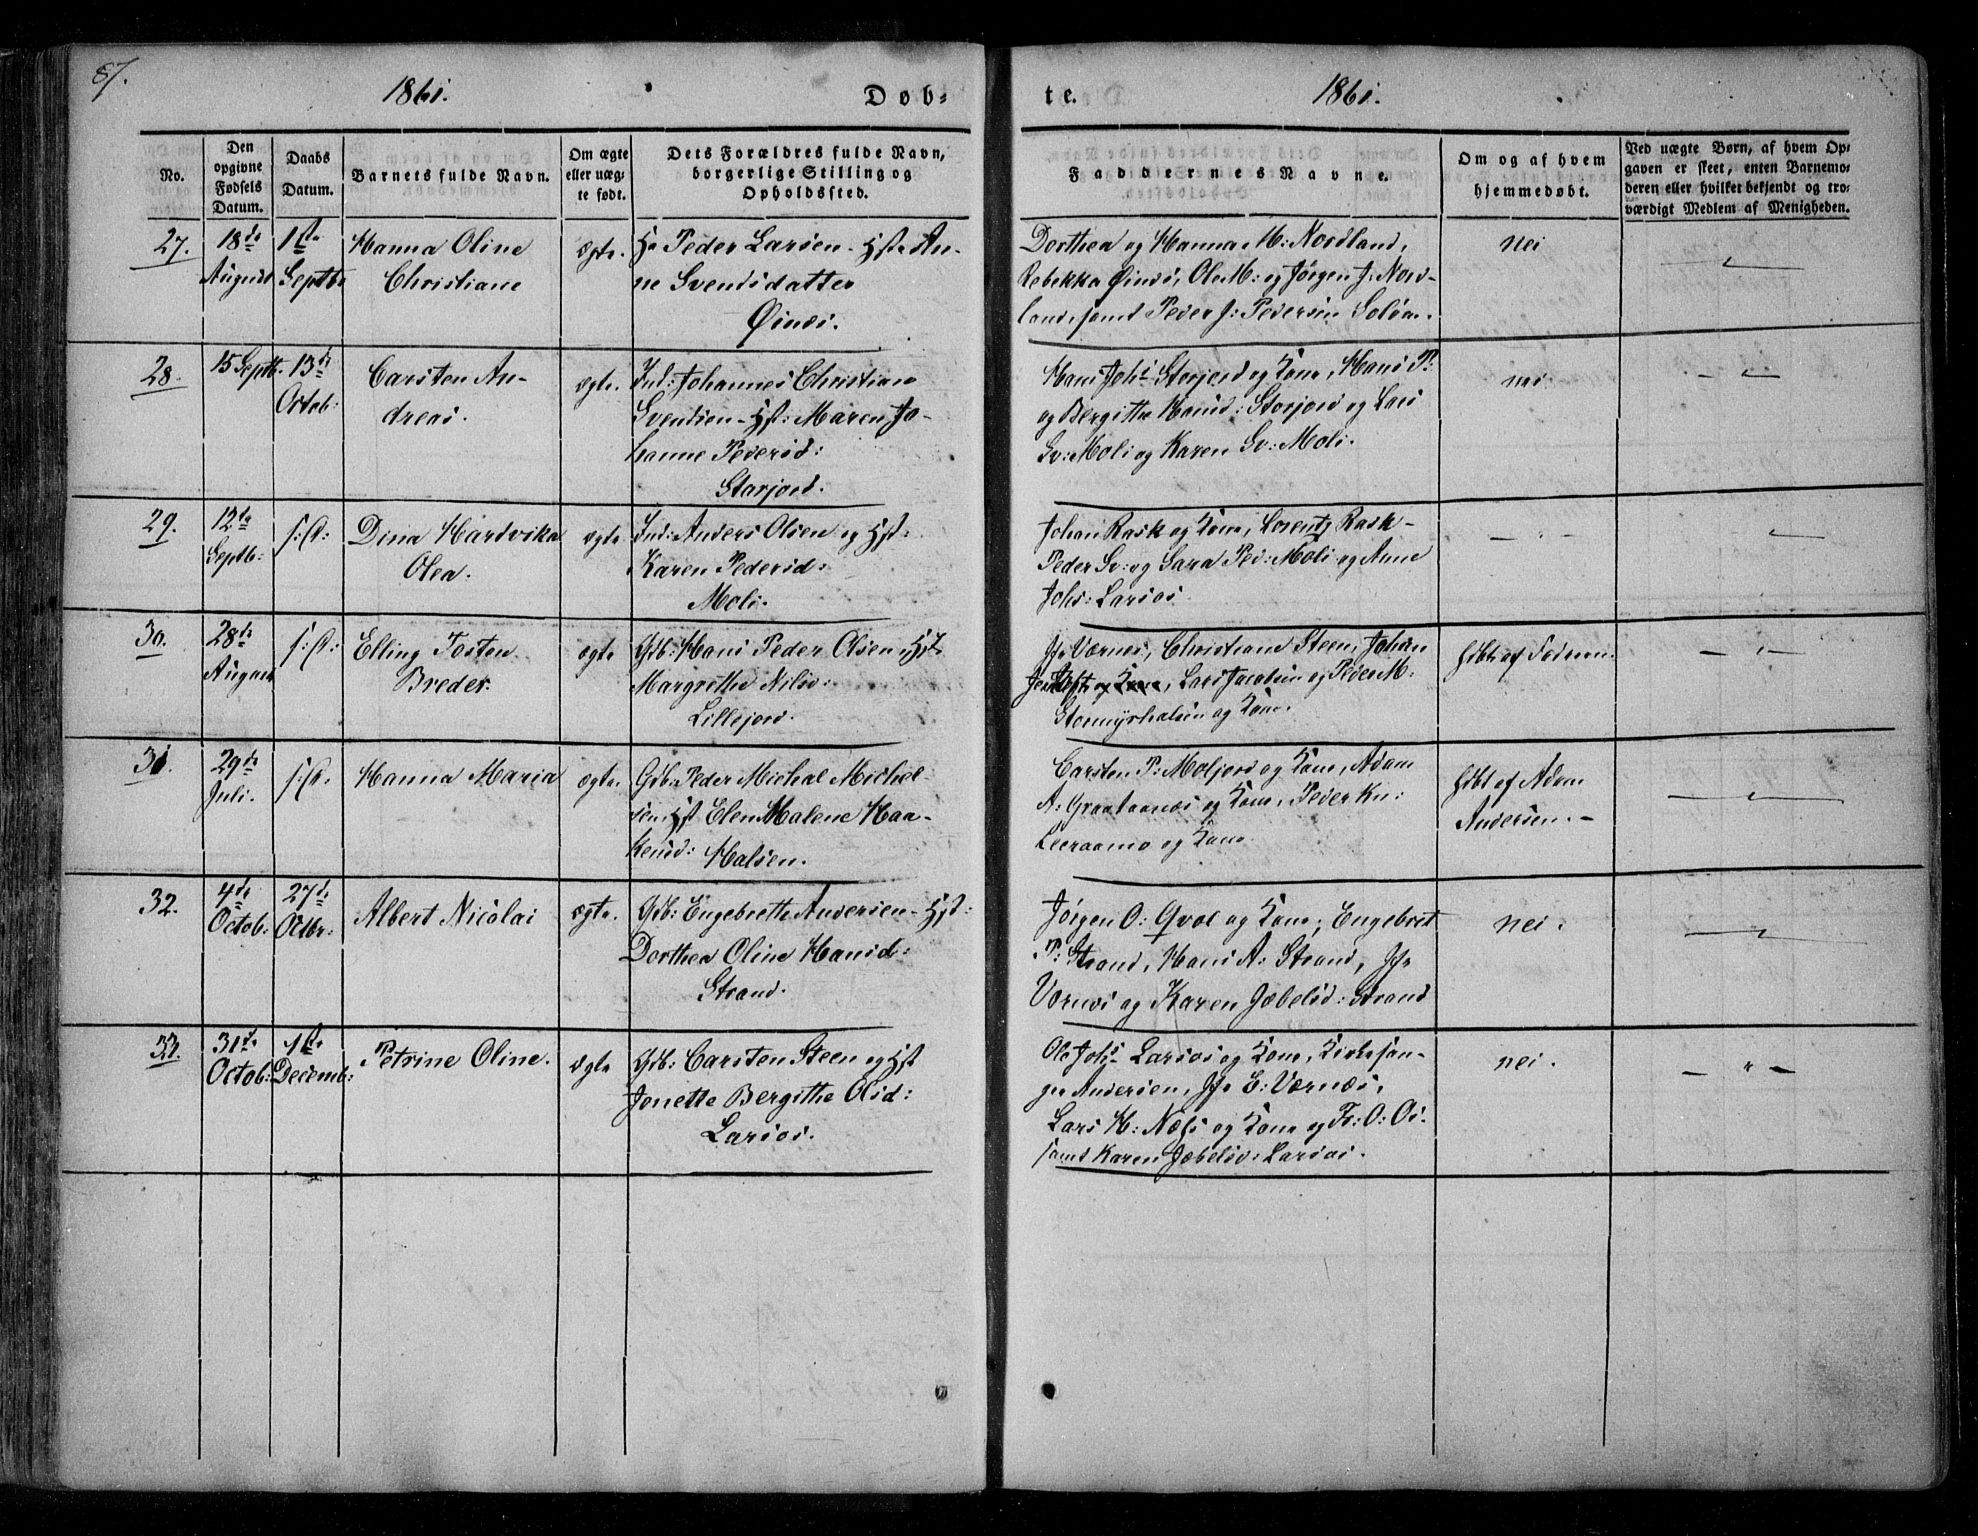 87.
1861.
Døb-
te.
1861.
No.
Den opgivne Fødsels Datum.
Daabs Datum.
Barnets fulde Navn.
Om ægte eller uæg-
te født.
Dets Forældres fulde Navn,
borgerlige Stilling og
Opholdssted.
Faddernes Navne.
Om og af hvem
hjemmedøbt.
Ved uægte Børn, af hvem Op-
gaven er skeet, enten Barnemo-
deren eller hvilker bekjendt og tro-
værdigt Medlem af Menigheden.
27.
18de
August
1ste
Septbr
Hanna Oline
Christiane
ægte.
Peder Larsen - Hst: An-
ne Svensdatter
Øines.
Dorthea og Hanna M: Nordland,
Rebekka Øines, Ole M: og Jørgen J: Nord-
land, samt Peder J: Pedersen
nei
28.
15 Septb.
13de
Octob:
Carsten An-
dreas.
ægte.
Ind: Johannes Christian
Svendsen - Hst: Maren Jo-
hanne Pedersd:
Storjord.
Hans Johs Storjord og Kone, Hans P:
og Bergitte Hansd: Storjord og Lars
Sv: Moli og Karen Sv: Moli.
nei
29.
12te
Septb:
s: D:
Dina Hardvika
Olea.
ægte.
Ind: Anders Olsen og Hst:
Karen Pedersd:
Moli.
Johan Rask og Kone, Lorentz Rask -
Peder Sv: og Sara Ped: Moli og Anne
Johs: Larsos
30.
28de
August
s: D:
Elling Tosten
Breder.
ægte
Gdb: Hans Peder Olsen, Hst
Margrethe Nilsd:
Lillejord.
Jfr Værnes, Christiane Steen, Johan
og Kone, Lars Jacobsen og Peder M:
Stormyrhalsen og Kone.
hdbt af Faderen
31.
29de
Juli.
s: D:
Hanna Maria
ægte.
Gdb: Peder Michal Michel-
sen, Hst Elen Malene Haa-
kensd: Halsen.
Carsten P: Moljord og Kone, Adam
A: Graataanæs og Kone, Peder Kn:
Leiraamo og Kone
hdbt af Adam
Andersen. -
32.
4de
Octob:
27de
Octbr.
Albert Nicolai
ægte.
Gdb: Engebrette Andersen - Hst:
Dorthea Oline Hansd:
Strand.
Jørgen O: Qval og Kone, Engebret
P: Strand, Hans A: Strand, Jfr
Værnes og Karen Jæbelsd: Strand
nei.
33.
31te
Octob:
1ste
Decemb:
Petrine Oline.
ægte
Gdb: Carsten Steen og Hst
Jonette Bergithe Olsd:
Larsos.
Ole Johs Larsos og Kone, Kirkesan-
ger Andersen, Jfr E: Værnes,
Lars H: Næss og Kone og Fr: O: Os.
samt Karen Jæbelsd: Larsos.
nei.